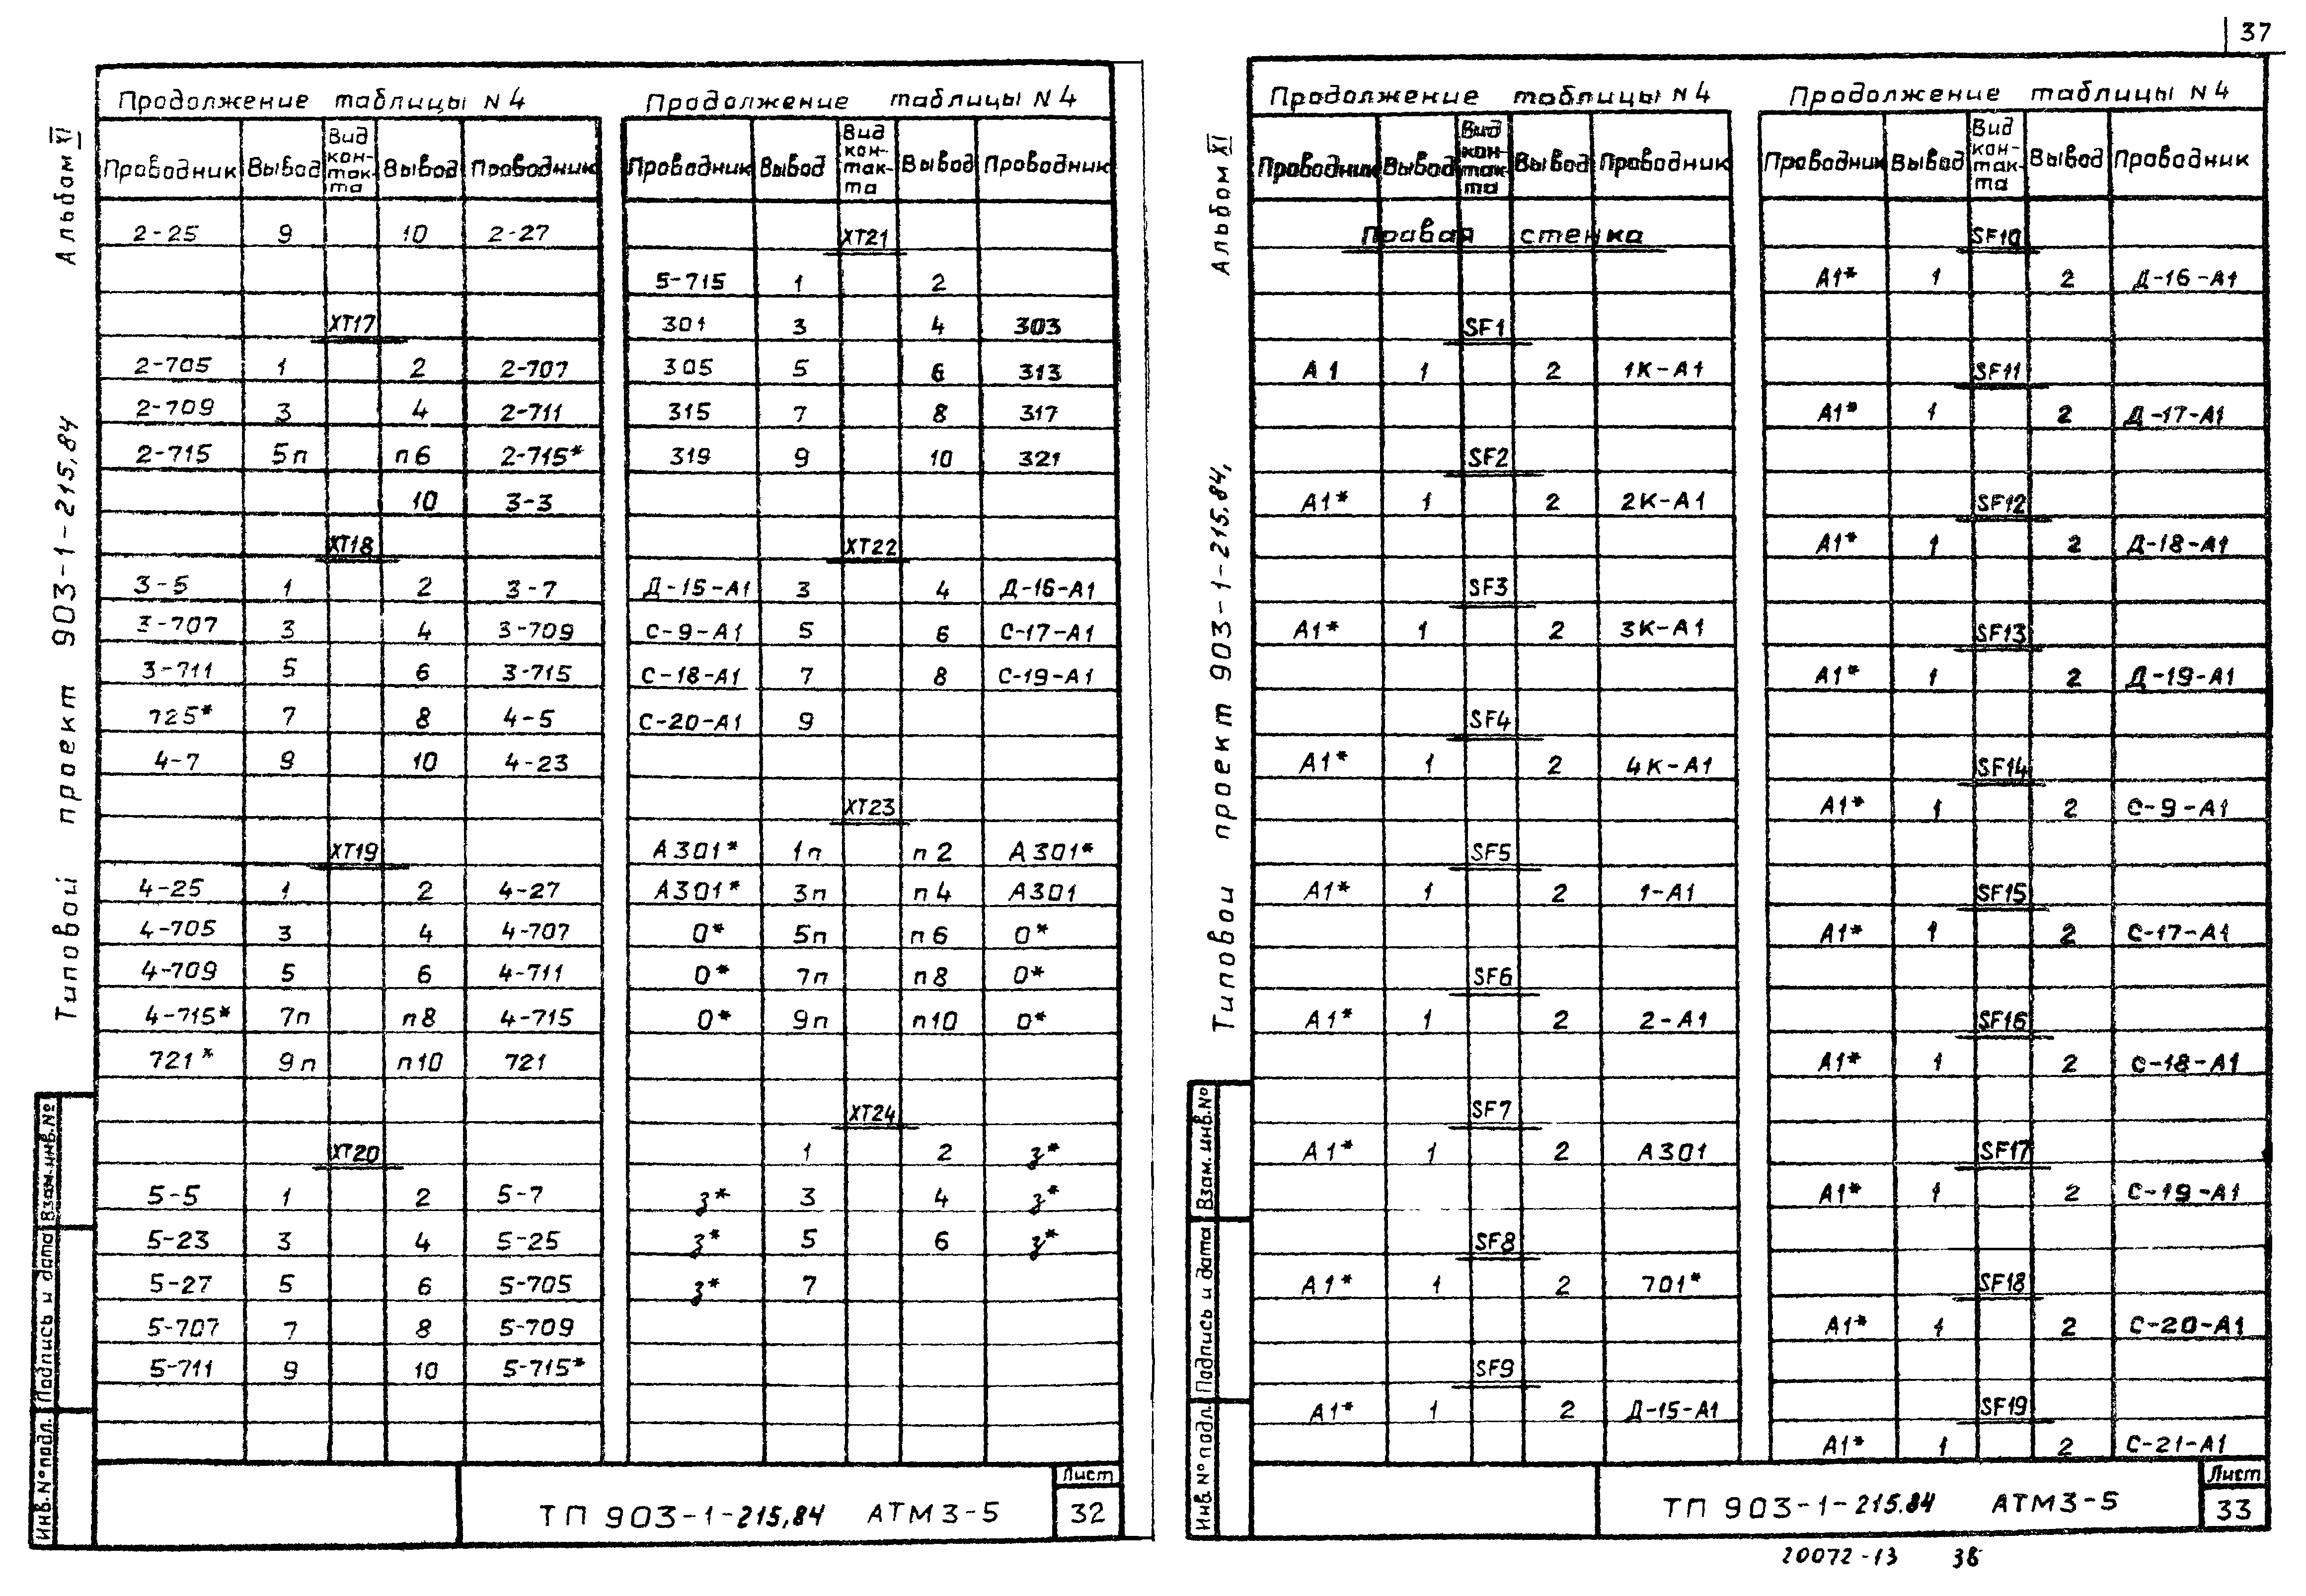 37
Альбом XI
Типовой проект 903-1-215.84
Продолжение таблицы N4
Проводник Вывод Вид кон-так-та Вывод Проводник
2-25 9 10 2-27
XT17
2-705 1 2 2-707
2-709 3 4 2-711
2-715 5п п6 2-715*
10 3-3
XT18
3-5 1 2 3-7
3-707 3 4 3-709
3-711 5 6 3-715
725* 7 8 4-5
4-7 9 10 4-23
XT19
4-25 1 2 4-27
4-705 3 4 4-707
4-709 5 6 4-711
4-715* 7п п8 4-715
721* 9п п10 721
XT20
5-5 1 2 5-7
5-23 3 4 5-25
5-27 5 6 5-705
5-707 7 8 5-709
5-711 9 10 5-715*
Продолжение таблицы N4
Проводник Вывод Вид кон-так-та Вывод Проводник
XT21
5-715 1 2
301 3 4 303
305 5 6 313
315 7 8 317
319 9 10 321
XT22
Д-15-А1 3 4 Д-16-А1
С-9-А1 5 6 С-17-А1
С-18-А1 7 8 С-19-А1
С-20-А1 9
XT23
А301* 1п п2 А301*
А301* 3п п4 А301
0* 5п п6 0*
0* 7п п8 0*
0* 9п п10 0*
XT24
1 2 з*
з* 3 4 з*
з* 5 6 з*
з* 7
Инв.№подл. Подпись и дата Взам.инв.№
ТП 903-1-215,84 АТМ3-5
Лист
32
Альбом XI
Типовой проект 903-1-215.84.
Продолжение таблицы N4
Проводник Вывод Вид кон-так-та Вывод Проводник
Правая стенка
SF1
А1 1 2 1К-А1
SF2
А1* 1 2 2К-А1
SF3
А1* 1 2 3К-А1
SF4
А1* 1 2 4К-А1
SF5
А1* 1 2 1-А1
SF6
А1* 1 2 2-А1
SF7
А1* 1 2 А301
SF8
А1* 1 2 701*
SF9
А1* 1 2 Д-15-А1
Продолжение таблицы N4
Проводник Вывод Вид кон-так-та Вывод Проводник
SF10
А1* 1 2 Д-16-А1
SF11
А1* 1 2 Д-17-А1
SF12
А1* 1 2 Д-18-А1
SF13
А1* 1 2 Д-19-А1
SF14
А1* 1 2 С-9-А1
SF15
А1* 1 2 С-17-А1
SF16
А1* 1 2 С-18-А1
SF17
А1* 1 2 С-19-А1
SF18
А1* 1 2 С-20-А1
SF19
А1* 1 2 С-21-А1
Инв.№подл. Подпись и дата Взам.инв.№
ТП 903-1-215.84 АТМ3-5
Лист
33
20072-13 38